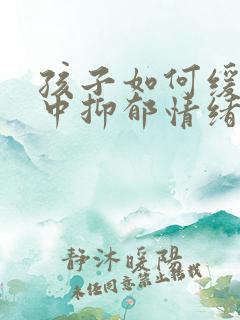 孩子如何缓
中抑郁情绪
静沐暖阳
未经同意禁止转载